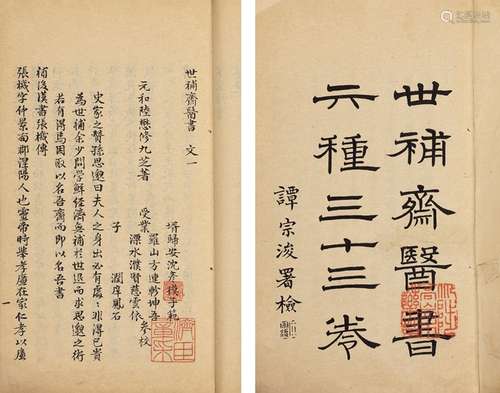 世補齋醫書
六種三十三卷
譚宗浚署檢
世補齋醫書 文一
元和陸懋修九芝著
壻歸安沈彥模子範
受業羅山方連軫坤吾參校
溧水濮賢慈雲依
子 潤庠鳳石
史家之贊孫思邈曰夫人之身出必有處處非得已貴
為世補余少問學鮮經濟無補於世退而求思邈之術
若有得焉因取以名吾齋而即以名吾書
補後漢書張機傳
張機字仲景南郡涅陽人也靈帝時舉孝廉在家仁孝以廉
一